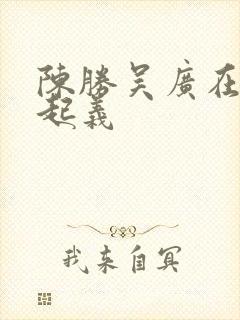 陳勝吴廣在
起義
我来自冥